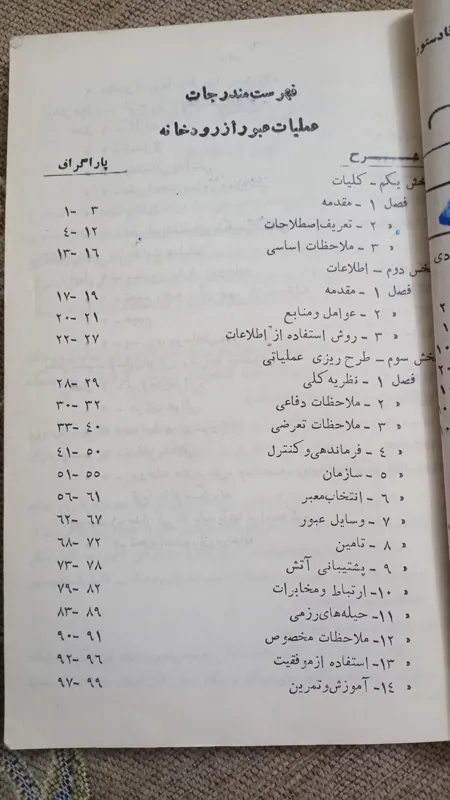 فهرست مندرجات
عملیات عبور از رودخانه
شـــــرح پاراگراف
بخش یکم - کلیات
فصل ۱ - مقدمه ۳ -۱
" ۲ - تعریف اصطلاحات ۱۲ -۴
" ۳ - ملاحظات اساسی ۱۶ -۱۳
بخش دوم - اطلاعات
فصل ۱ - مقدمه ۱۹ -۱۷
" ۲ - عوامل و منابع ۲۱ -۲۰
" ۳ - روش استفاده از اطلاعات ۲۷ -۲۲
بخش سوم - طرح ریزی عملیاتی
فصل ۱ - نظریه کلی ۲۹ -۲۸
" ۲ - ملاحظات دفاعی ۳۲ -۳۰
" ۳ - ملاحظات تعرضی ۴۰ -۳۳
" ۴ - فرماندهی و کنترل ۵۰ -۴۱
" ۵ - سازمان ۵۵ -۵۱
" ۶ - انتخاب معبر ۶۱ -۵۶
" ۷ - وسایل عبور ۶۷ -۶۲
" ۸ - تامین ۷۲ -۶۸
" ۹ - پشتیبانی آتش ۷۸ -۷۳
" ۱۰- ارتباط و مخابرات ۸۲ -۷۹
" ۱۱- حیله‌های رزمی ۸۹ -۸۳
" ۱۲- ملاحظات مخصوص ۹۱ -۹۰
" ۱۳- استفاده از موفقیت ۹۶ -۹۲
" ۱۴- آموزش و تمرین ۹۹ -۹۷